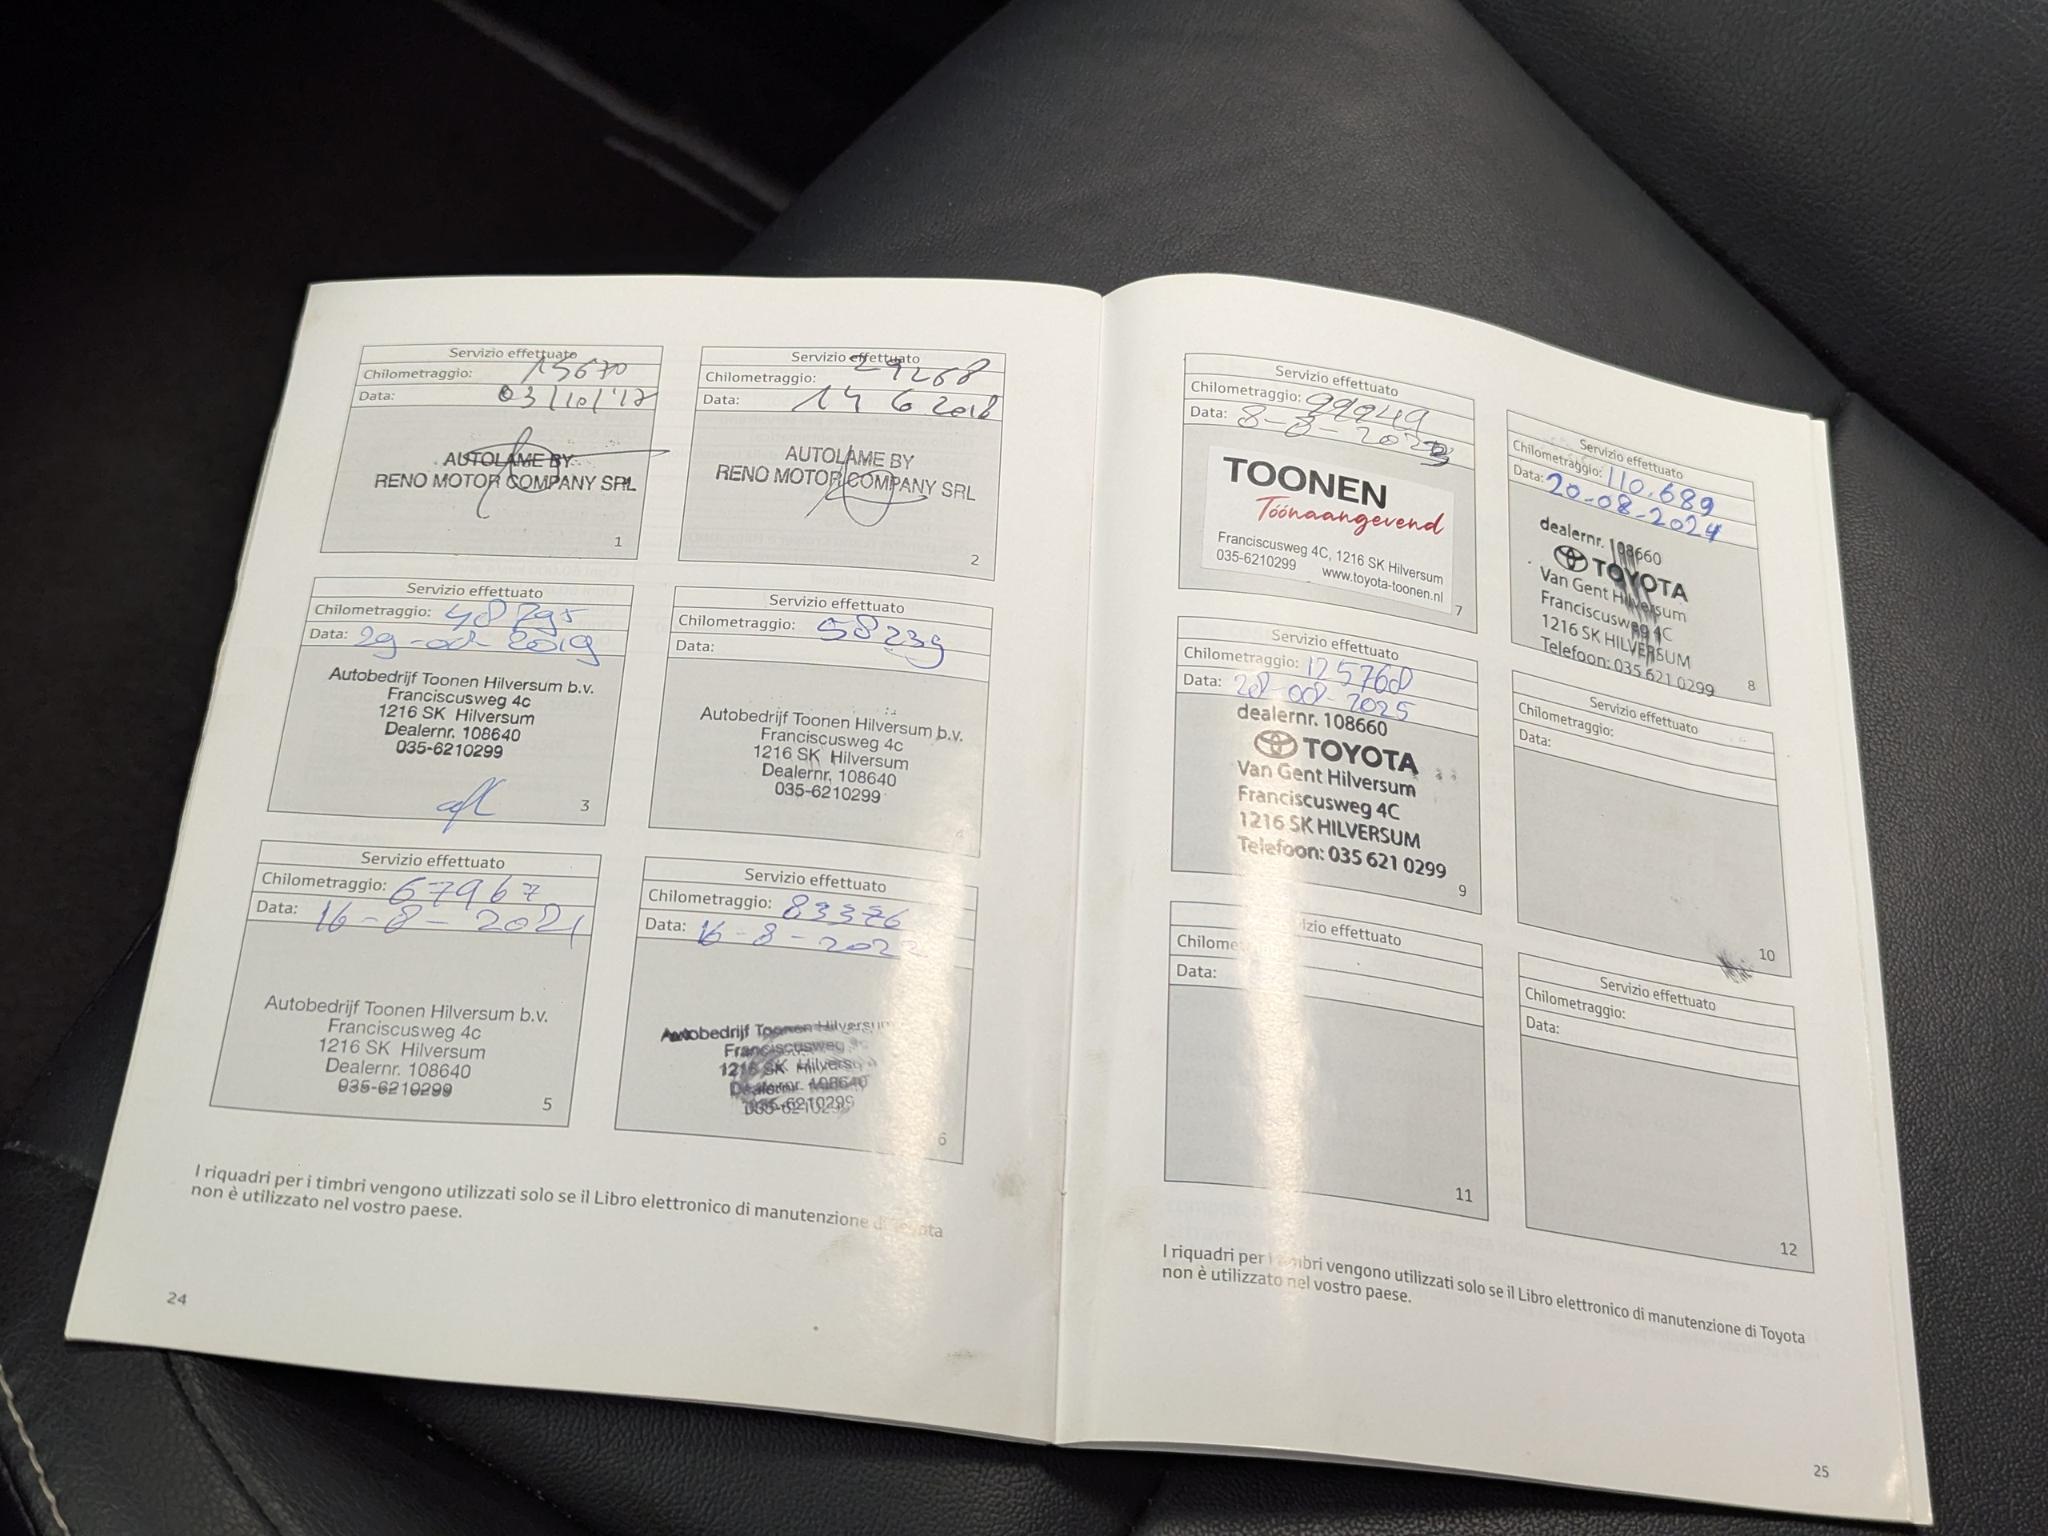 Servizio effettuato
Chilometraggio: 15670
Data: 03/10/'17
AUTOLAME BY
RENO MOTOR COMPANY SRL
1
Servizio effettuato
Chilometraggio: 29268
Data: 14 6 2018
AUTOLAME BY
RENO MOTOR COMPANY SRL
2
Servizio effettuato
Chilometraggio: 48795
Data: 29-08-2019
Autobedrijf Toonen Hilversum b.v.
Franciscusweg 4c
1216 SK Hilversum
Dealernr. 108640
035-6210299
3
Servizio effettuato
Chilometraggio: 58239
Data:
Autobedrijf Toonen Hilversum b.v.
Franciscusweg 4c
1216 SK Hilversum
Dealernr. 108640
035-6210299
4
Servizio effettuato
Chilometraggio: 67967
Data: 16-8-2021
Autobedrijf Toonen Hilversum b.v.
Franciscusweg 4c
1216 SK Hilversum
Dealernr. 108640
035-6210299
5
Servizio effettuato
Chilometraggio: 83376
Data: 16-8-2022
Autobedrijf Toonen Hilversum
Franciscusweg 4c
1216 SK Hilversum
Dealernr. 108640
035-6210299
6
I riquadri per i timbri vengono utilizzati solo se il Libro elettronico di manutenzione di Toyota
non è utilizzato nel vostro paese.
24
Servizio effettuato
Chilometraggio: 99949
Data: 8-8-2023
TOONEN
Tóónaangevend
Franciscusweg 4C, 1216 SK Hilversum
035-6210299 www.toyota-toonen.nl
7
Servizio effettuato
Chilometraggio: 110.689
Data: 20-08-2024
dealernr. 108660
TOYOTA
Van Gent Hilversum
Franciscusweg 4C
1216 SK HILVERSUM
Telefoon: 035 621 0299
8
Servizio effettuato
Chilometraggio: 125760
Data: 28-08-2025
dealernr. 108660
TOYOTA
Van Gent Hilversum
Franciscusweg 4C
1216 SK HILVERSUM
Telefoon: 035 621 0299
9
Servizio effettuato
Chilometraggio:
Data:
10
Servizio effettuato
Chilome
Data:
11
Servizio effettuato
Chilometraggio:
Data:
12
I riquadri per i timbri vengono utilizzati solo se il Libro elettronico di manutenzione di Toyota
non è utilizzato nel vostro paese.
25